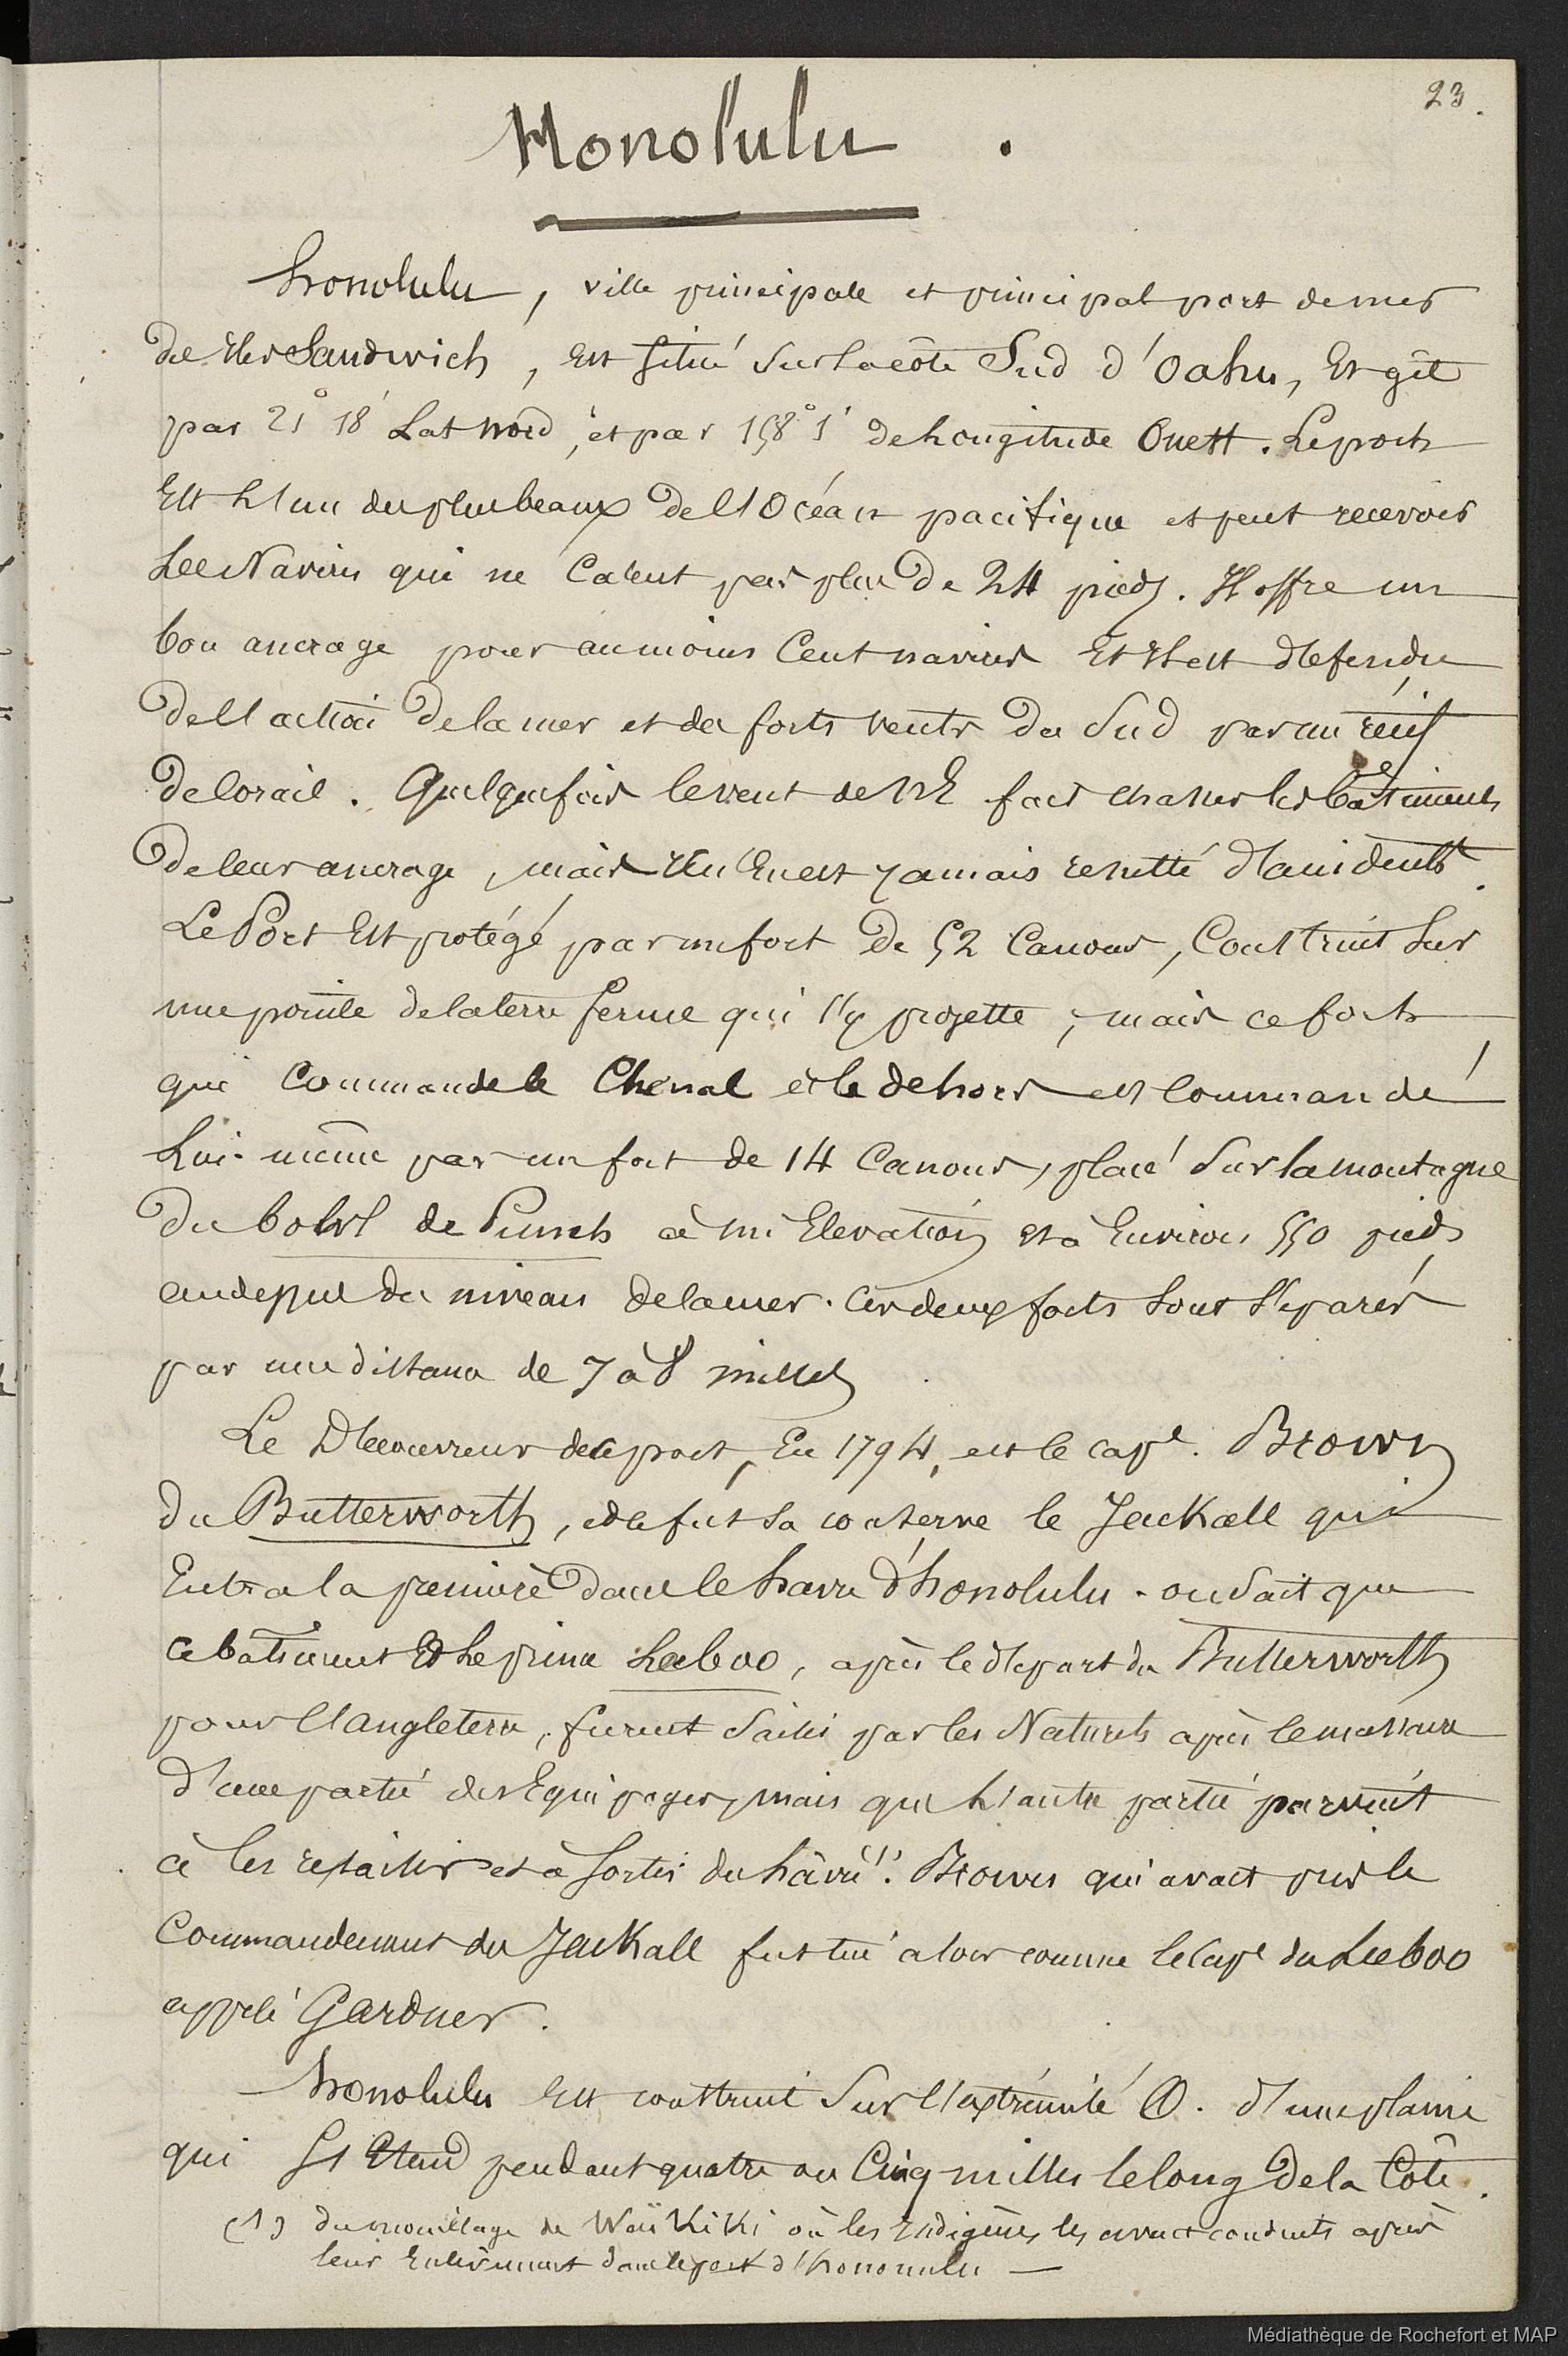 23.
Honolulu.
Honolulu, ville principale et principal port de mer
des Iles Sandwich, est situé sur la côte Sud d'Oahu, et gît
par 21° 18' Lat Nord, et par 158° 1' de Longitude Ouest. Le port
est l'un des plus beaux de l'Océan pacifique et peut recevoir
les Navires qui ne calent pas plus de 24 pieds. Il offre un
bon ancrage pour au moins cent navires et il est défendu
de l'action de la mer et des forts vents du Sud par un récif
de Corail. Quelquefois le vent de NE fait chasser les bâtiments
de leur ancrage, mais il n'en est jamais resulté d'accidents.
Le Port est protégé par un fort de 52 Canons, Construit sur
une pointe de la terre ferme qui s'y projette, mais ce fort
qui commande le Chenal et le dehors est commandé
lui-même par un fort de 14 Canons, placé sur la montagne
du bowl de Punch à mi Elevation et à Environ 550 pieds
au dessus du niveau de la mer. Ces deux forts sont séparés
par une distance de 7 à 8 milles
Le Découvreur de ce port, En 1794, est le cape. Brown
du Butterworth, et ce fut sa conserve le Jackall qui
Entra la première dans le havre d'honolulu - on sait que
ce bâtiment et le prince Leeboo, après le départ du Butterworth
pour l'angleterre, furent saisis par les Naturels après le massacre
d'une partie des Equipages, mais que l'autre partie parvint
à les ressaisir et à sortir du hâvre (1). Brown qui avait pris le
Commandement du Jackall fut tué alors comme le Cape du Leeboo
appelé Gardner.
Honolulu est construit sur l'extrémité O. d'une plaine
qui s'Etend pendant quatre ou Cinq milles le long de la Côte.
(1) du mouillage de Waïkiki où les Indigènes les avait conduits après
leur Enlèvement dans le port d'honorurulu —
Médiathèque de Rochefort et MAP